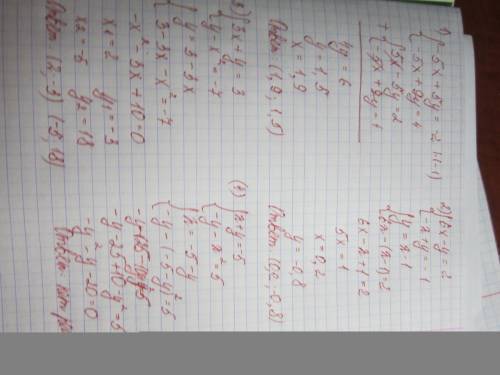 1) { -5x + 5y = -2 |·(-1)
{ -5x + 9y = 4
+ { 5x - 5y = 2
{ -5x + 9y = 4
4y = 6
y = 1,5
x = 1,9
Ответ: (1,9; 1,5)
2) { 6x - y = 2
{ -x + y = -1
{ y = x - 1
{ 6x - (x-1) = 2
6x - x - 1 = 2
5x = 1
x = 0,2
y = -0,8
Ответ: (0,2; -0,8)
{ 3x + y = 3
{ y - x² = -7
{ y = 3 - 3x
{ 3 - 3x - x² = -7
-x² - 3x + 10 = 0
x₁ = 2 y₁ = -3
x₂ = -5 y₂ = 18
Ответ: (2; -3) (-5; 18)
{ x + y = -5
{ -y - x² = 5
{ x = -5 - y
{ -y - (-5 - y)² = 5
-y - 25 + 10 - y² = 5
-y² - y - 20 = 0
Ответ: нет